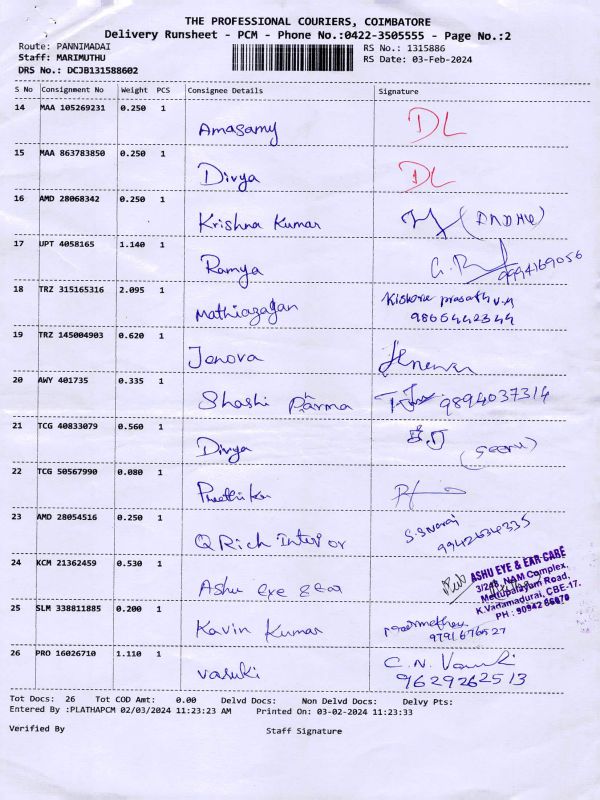 THE PROFESSIONAL COURIERS, COIMBATORE
Delivery Runsheet - PCM - Phone No.:0422-3505555 - Page No.:2
Route: PANNIMADAI RS No.: 1315886
Staff: MARIMUTHU RS Date: 03-Feb-2024
DRS No.: DCJB131588602
S No Consignment No Weight PCS Consignee Details Signature
14 MAA 105269231 0.250 1
Amasamy DL
15 MAA 863783850 0.250 1
Divya DL
16 AMD 28068342 0.250 1
Krishna Kumar
17 UPT 4058165 1.140 1
Ramya 9994169056
18 TRZ 315165316 2.095 1
Mathiazagan Kishore prasath V.M
9865442344
19 TRZ 145004903 0.620 1
Jenova
20 AWY 401735 0.335 1
Shashi Parma 9894037314
21 TCG 40833079 0.560 1
Divya
22 TCG 50567990 0.080 1
Preethika
23 AMD 28054516 0.250 1
Q Rich Interior
24 KCM 21362459 0.530 1
Ashu eye & ear
ASHU EYE & EAR CARE
3/248, NAM Complex,
Mettupalayam Road,
K.Vadamadurai, CBE-17.
PH : 90942 66070
25 SLM 338811885 0.200 1
Kavin Kumar
9791676527
26 PRO 16026710 1.110 1
Vasuki C.N. Vasuki
9629262513
Tot Docs: 26 Tot COD Amt: 0.00 Delvd Docs: Non Delvd Docs: Delvy Pts:
Entered By :PLATHAPCM 02/03/2024 11:23:23 AM Printed On: 03-02-2024 11:23:33
Verified By Staff Signature